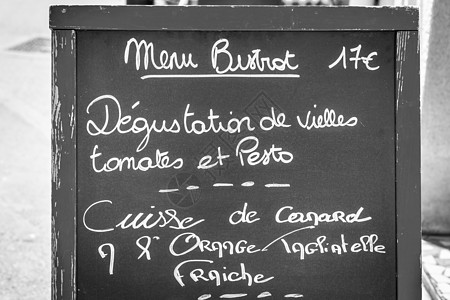 Menu Bistrot 17€
Dégustation de vielles
tomates et Pesto
Cuisse de canard
à l'Orange Tagliatelle
Fraiche